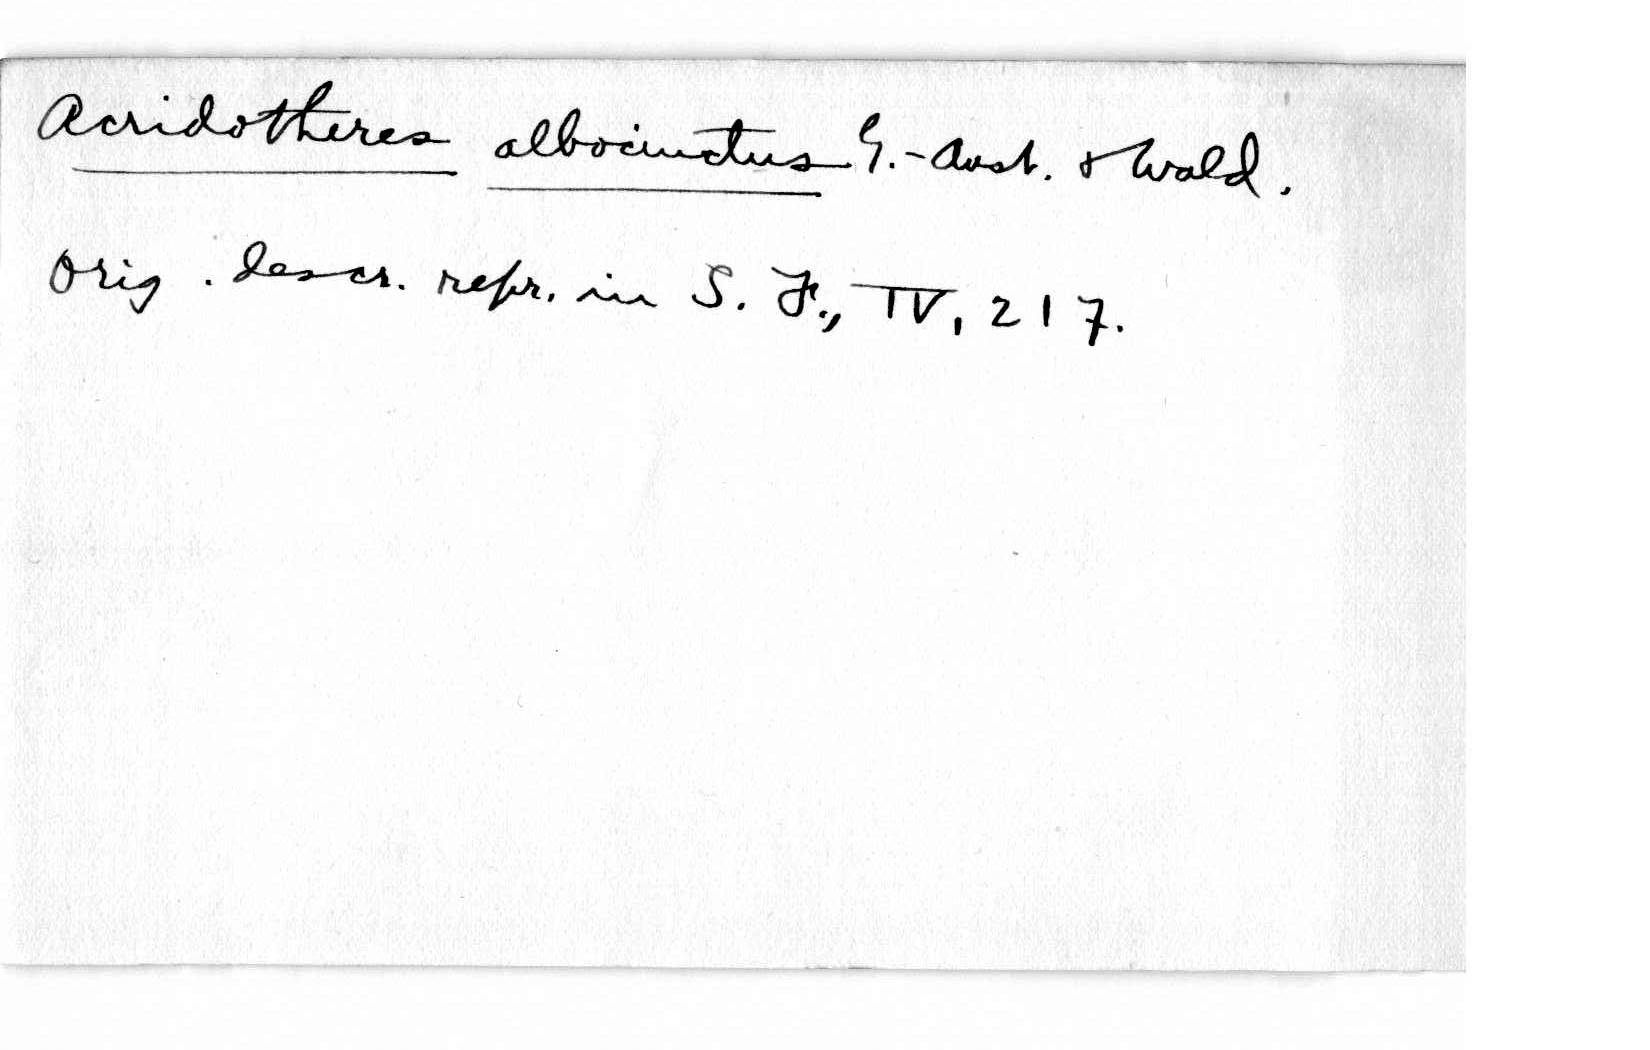 Acridotheres albocinctus G.-Aust. & Wald.
Orig. descr. repr. in S. F., IV, 217.